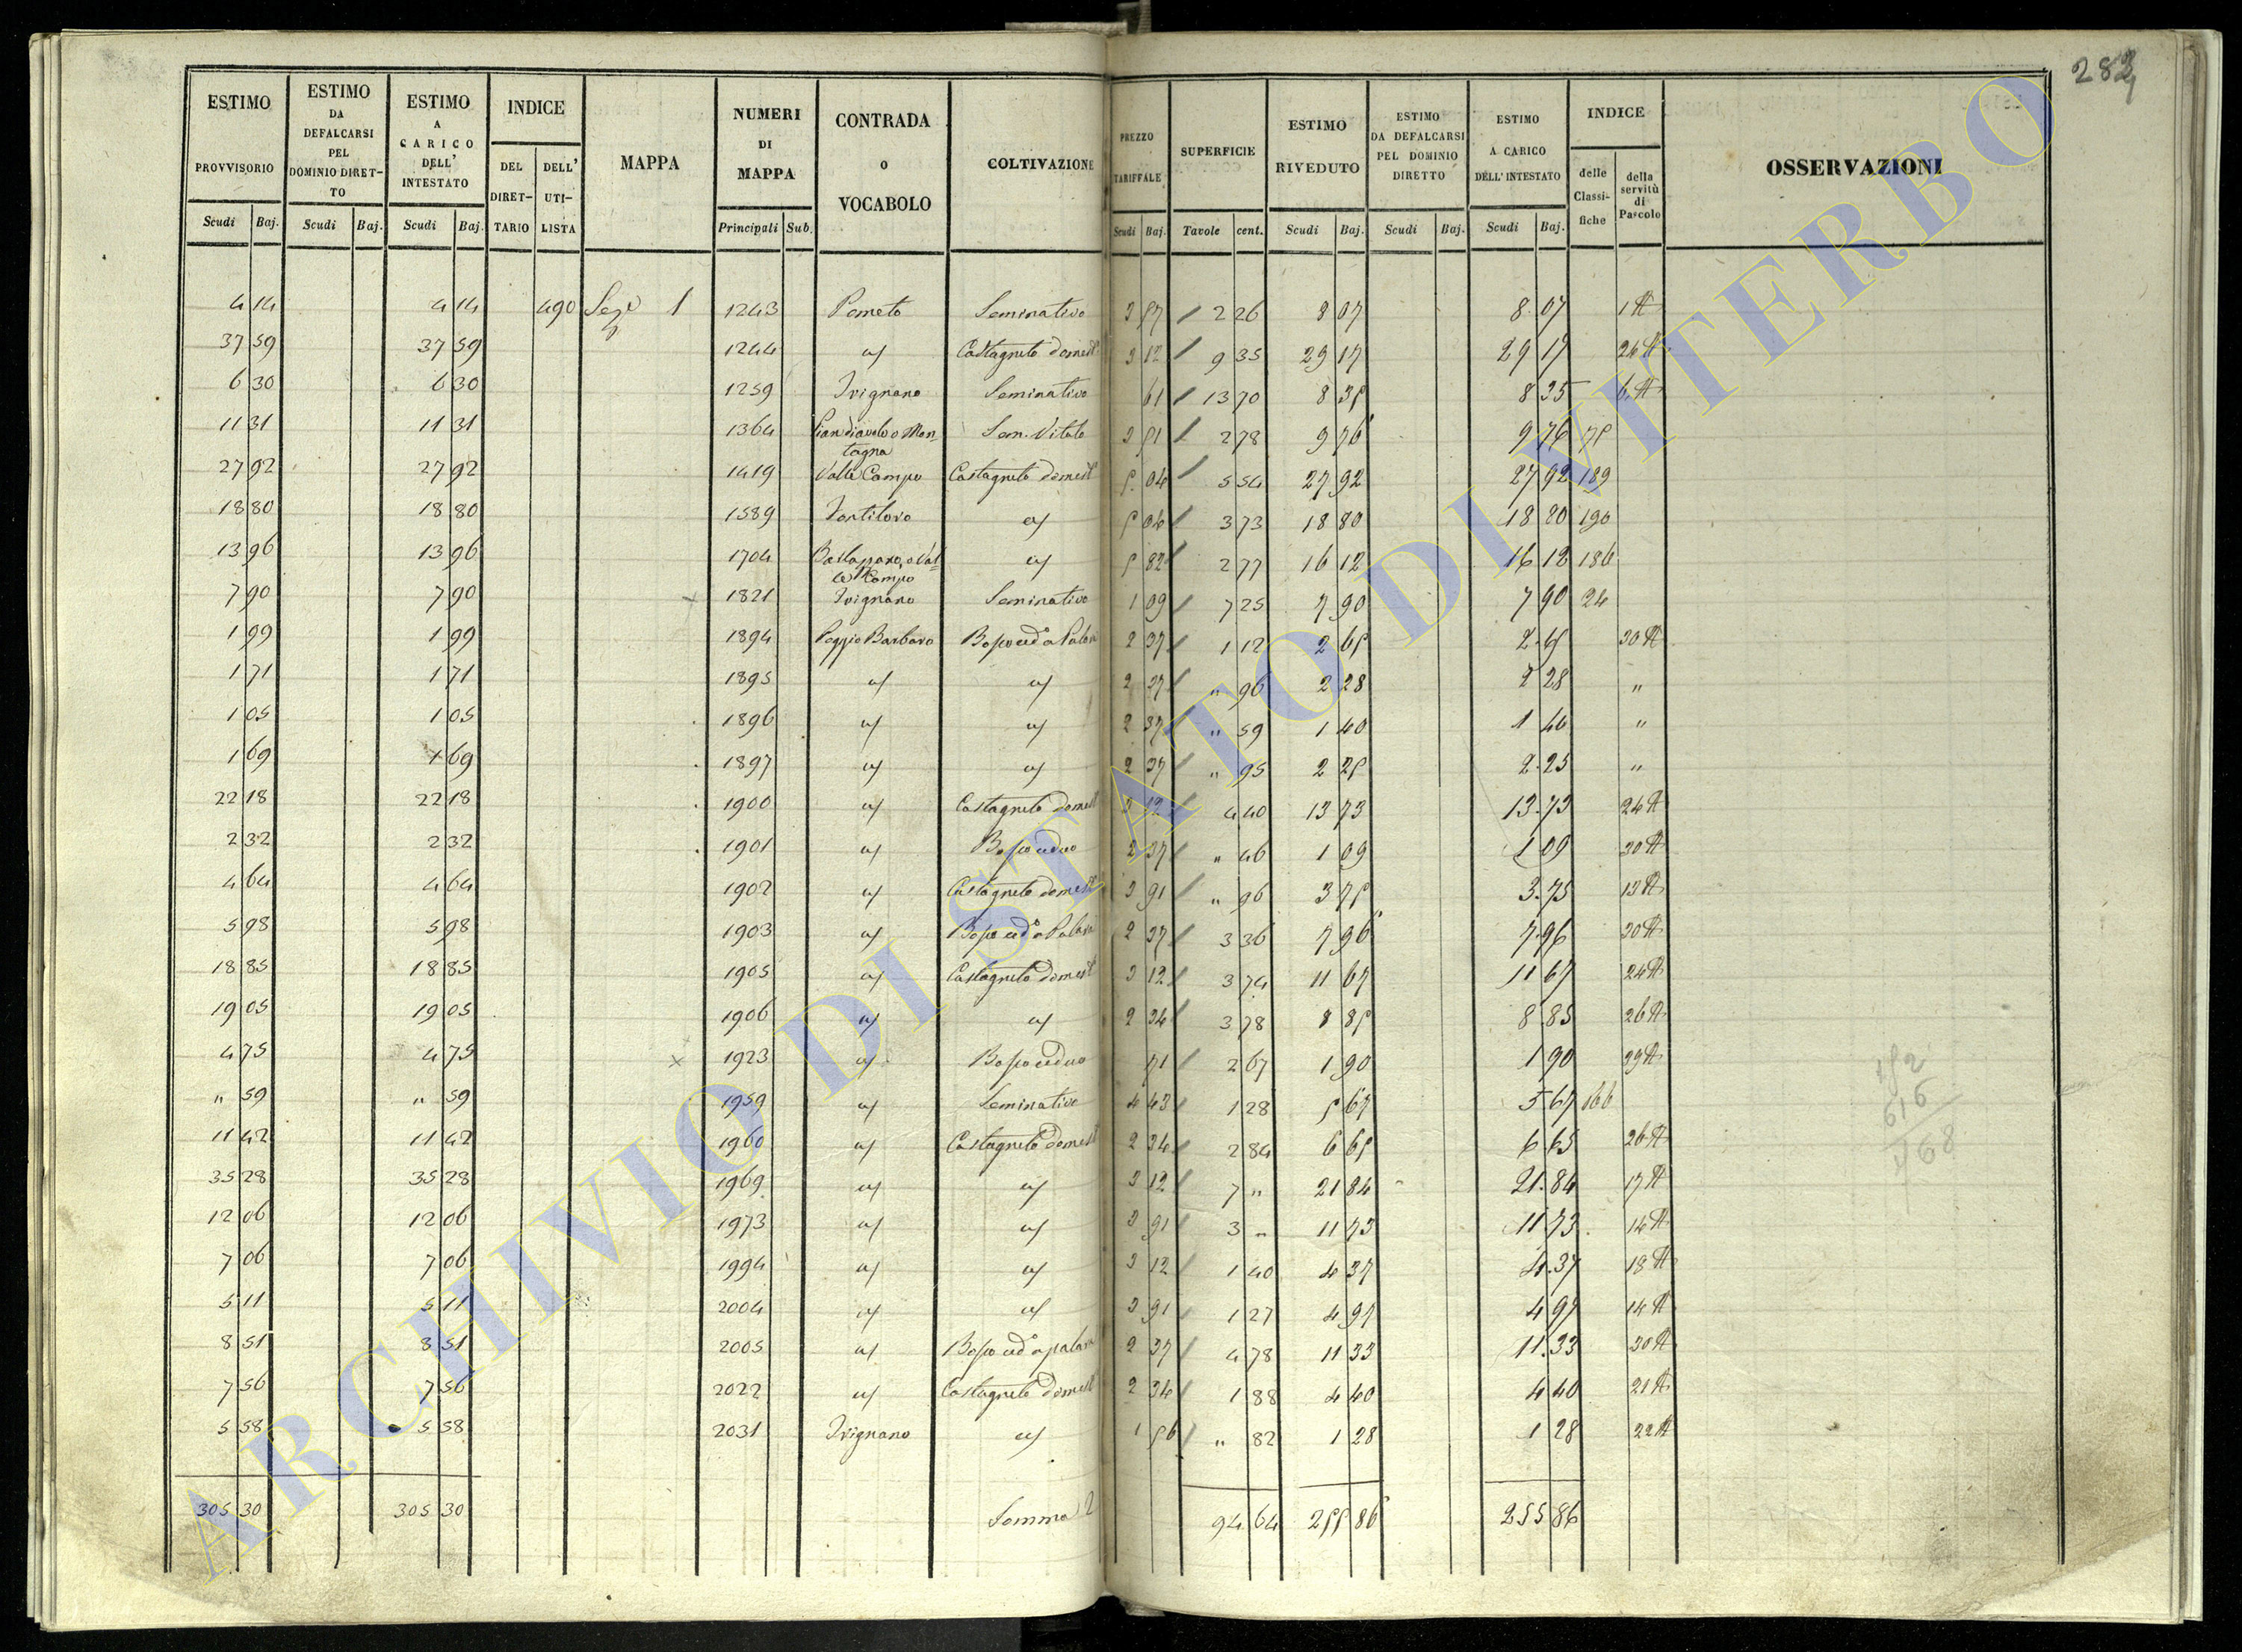 283
ESTIMO PROVVISORIO | ESTIMO DA DEFALCARSI PEL DOMINIO DIRETTO | ESTIMO A CARICO DELL' INTESTATO | INDICE | MAPPA | NUMERI DI MAPPA | CONTRADA O VOCABOLO | COLTIVAZIONE | PREZZO TARIFFALE | SUPERFICIE | ESTIMO RIVEDUTO | ESTIMO DA DEFALCARSI PEL DOMINIO DIRETTO | ESTIMO A CARICO DELL' INTESTATO | INDICE | OSSERVAZIONI
DEL DIRETTARIO | DELL' UTILISTA | delle Classifiche | della servitù di Pascolo
Scudi | Baj. | Scudi | Baj. | Scudi | Baj. | Principali | Sub. | Scudi | Baj. | Tavole | cent. | Scudi | Baj. | Scudi | Baj. | Scudi | Baj.
4 14 | 4 14 | 490 | Sez.e 1 | 1243 | Pometo | Seminativo | 3 57 | 2 26 | 8 07 | 8 07 | 1 A
37 59 | 37 59 | 1244 | a/ | Castagneto domest | 3 12 | 9 35 | 29 17 | 29 17 | 26 A
6 30 | 6 30 | 1259 | Ivignano | Seminativo | 61 | 13 70 | 8 35 | 8 35 | 6 A
11 31 | 11 31 | 1364 | Piandiavolo o Montagna | Sem. Vitato | 3 51 | 2 78 | 9 76 | 9 76 | 75
27 92 | 27 92 | 1419 | Valle Campo | Castagneto domest | 5 04 | 5 54 | 27 92 | 27 92 | 189
18 80 | 18 80 | 1589 | a/ | 5 04 | 3 73 | 18 80 | 18 80 | 190
13 96 | 13 96 | 1704 | Campo | a/ | 5 82 | 2 77 | 16 12 | 16 12 | 186
7 90 | 7 90 | 1821 | Ivignano | Seminativo | 1 09 | 7 25 | 7 90 | 7 90 | 24
1 99 | 1 99 | 1894 | Poggio Barbaro | Bosco ced.o a Palina | 2 37 | 1 12 | 2 65 | 2 65 | 30 A
1 71 | 1 71 | 1895 | a/ | a/ | 2 37 | " 96 | 2 28 | 2 28 | "
1 05 | 1 05 | 1896 | a/ | a/ | 2 37 | " 59 | 1 40 | 1 40 | "
1 69 | 1 69 | 1897 | a/ | a/ | 2 37 | " 95 | 2 25 | 2 25 | "
22 18 | 22 18 | 1900 | a/ | Castagneto domest | 3 12 | 4 40 | 13 73 | 13 73 | 24 A
2 32 | 2 32 | 1901 | a/ | Bosco ceduo | 2 37 | " 46 | 1 09 | 1 09 | 30 A
4 64 | 4 64 | 1902 | a/ | Castagneto domest | 3 91 | " 96 | 3 75 | 3 75 | 13 A
5 98 | 5 98 | 1903 | a/ | Bosco ced.o a Palina | 2 37 | 3 36 | 7 96 | 7 96 | 30 A
18 85 | 18 85 | 1905 | a/ | Castagneto domest | 3 12 | 3 74 | 11 67 | 11 67 | 24 A
19 05 | 19 05 | 1906 | a/ | a/ | 2 34 | 3 78 | 8 85 | 8 85 | 26 A
4 75 | 4 75 | x | 1923 | a/ | Bosco ceduo | 71 | 2 67 | 1 90 | 1 90 | 29 A
" 59 | " 59 | 1959 | a/ | Seminativo | 4 43 | 1 28 | 5 67 | 5 67 | 166
11 42 | 11 42 | 1960 | a/ | Castagneto domest | 2 34 | 2 84 | 6 65 | 6 65 | 26 A
35 28 | 35 28 | 1969 | a/ | a/ | 3 12 | 7 " | 21 84 | 21 84 | 17 A
12 06 | 12 06 | 1973 | a/ | a/ | 3 91 | 3 " | 11 73 | 11 73 | 14 A
7 06 | 7 06 | 1994 | a/ | a/ | 3 12 | 1 40 | 4 37 | 4 37 | 18 A
5 11 | 5 11 | 2004 | a/ | a/ | 3 91 | 1 27 | 4 97 | 4 97 | 14 A
8 51 | 8 51 | 2005 | a/ | Bosco ced.o a palina | 2 37 | 4 78 | 11 33 | 11 33 | 30 A
7 56 | 7 56 | 2022 | a/ | Castagneto domest | 2 34 | 1 88 | 4 40 | 4 40 | 21 A
5 58 | 5 58 | 2031 | Ivignano | a/ | 1 56 | " 82 | 1 28 | 1 28 | 22 A
305 30 | 305 30 | Somma | 94 64 | 255 86 | 255 86
616
ARCHIVIO DI STATO DI VITERBO